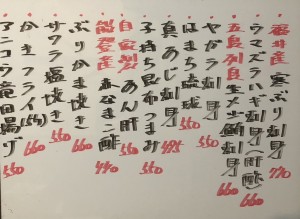 福井産 寒ぶり刺身 770
ウマズラハギ刺身(肝酢) 660
五島列島 生メジ鮪刺身 660
ヤガラ刺身 550
はまち琉球 550
真あじ刺身 495
子持ち昆布つまみ 550
自家製 あん肝 550
能登産 赤なまこ酢 440
ぶりかま焼き 550
サワラ塩焼き 660
かきフライ 660
アンコウ竜田揚げ 550